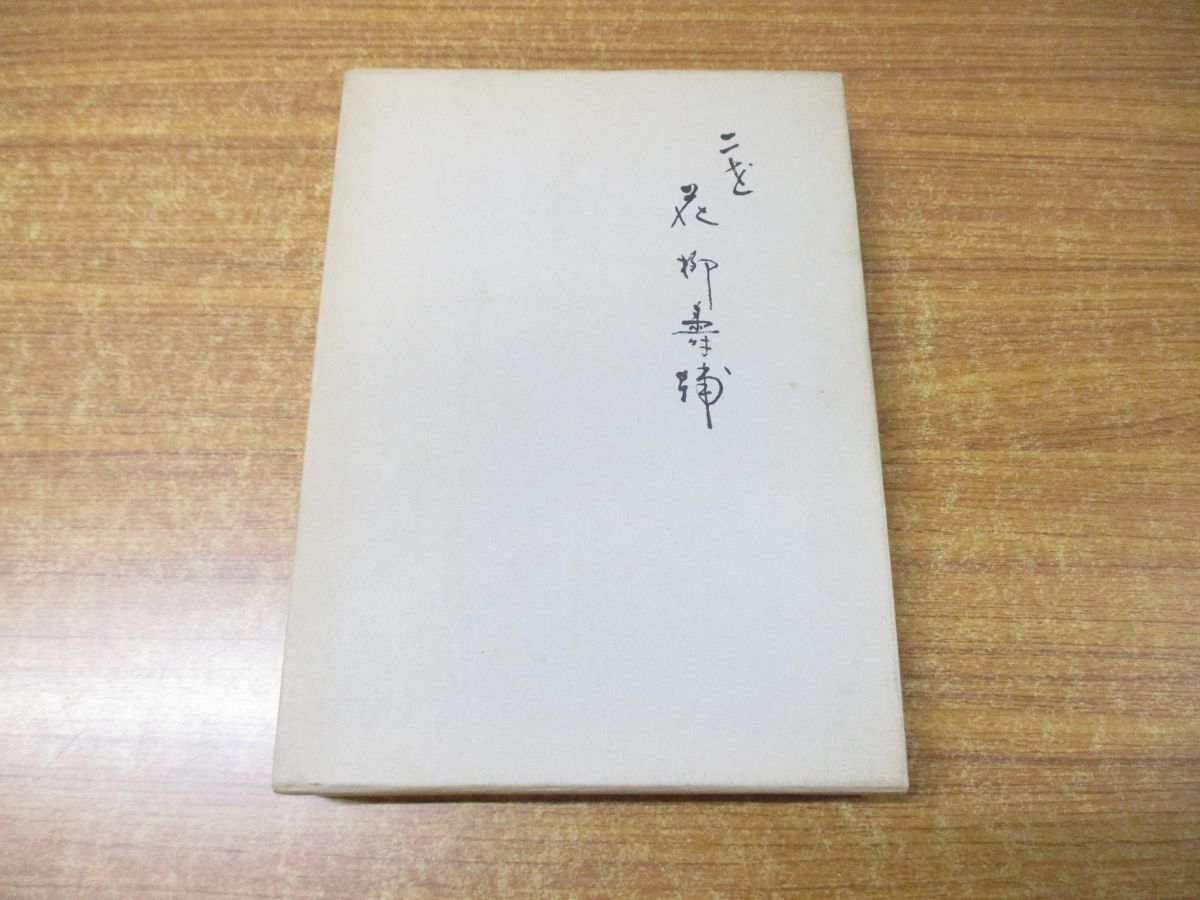 二世
花柳壽輔